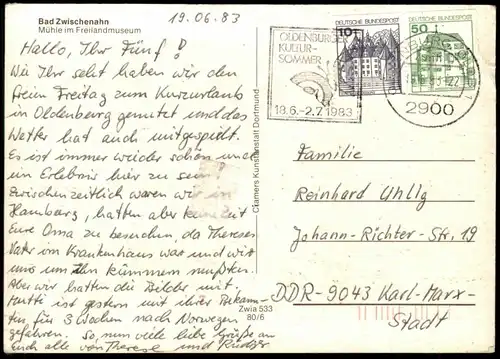 Bad Zwischenahn
Mühle im Freilandmuseum
19.06.83
Hallo, Ihr Fünf!
Wie Ihr seht haben wir den
freien Freitag zum Kurzurlaub
in Oldenburg genutzt und das
Wetter hat auch mitgespielt.
Es ist immer wieder schön und
ein Erlebnis hier zu sein!
Zwischenzeitlich waren wir in
Hamburg, hatten aber kein Zeit
Eure Oma zu besuchen, da Thereses
Vater im Krankenhaus war und wir
uns um ihn kümmern mußten.
Aber wir hatten die Bilder mit.
Mutti ist gestern mit ihrer Bekann-
ten für 3 Wochen nach Norwegen
gefahren. So, nun viele liebe Grüße an
Euch alle von Therese und Rüdiger
Cramers Kunstanstalt Dortmund
Zwia 533
80/6
OLDENBURGER
KULTUR-
SOMMER
18.6.-2.7.1983
10 DEUTSCHE BUNDESPOST
50 DEUTSCHE BUNDESPOST
2900
Familie
Reinhard Uhlig
Johann-Richter-Str. 19
DDR-9043 Karl-Marx-
Stadt